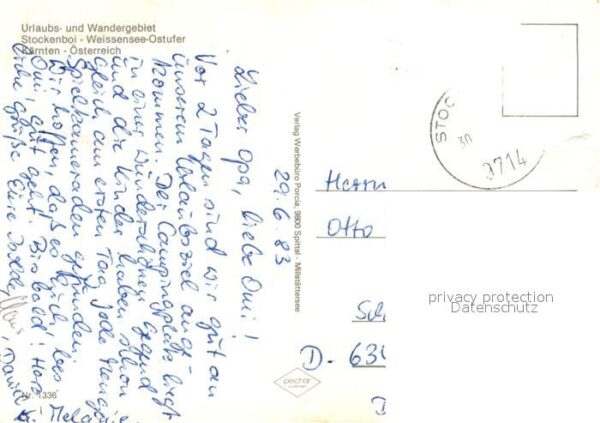 Urlaubs- und Wandergebiet
Stockenboi - Weissensee-Ostufer
Kärnten - Österreich
29.6.83
Lieber Opa, liebe Omi!
Vor 2 Tagen sind wir gut an
unserem Urlaubsziel ange-
kommen. Der Campingplatz liegt
in einer wunderschönen Gegend
und die Kinder haben schon
gleich am ersten Tag jede Menge
Spielkameraden gefunden.
Wir hoffen, daß es Euch, bes.
Omi, gut geht. Bis bald!
Liebe Grüße, Eure
Daniel
Verlag Werbebüro Porcia, 9800 Spittal - Millstättersee
STOC
30
9714
Herrn
Otto
D-
privacy protection
Datenschutz
pechar
Nr. 1336